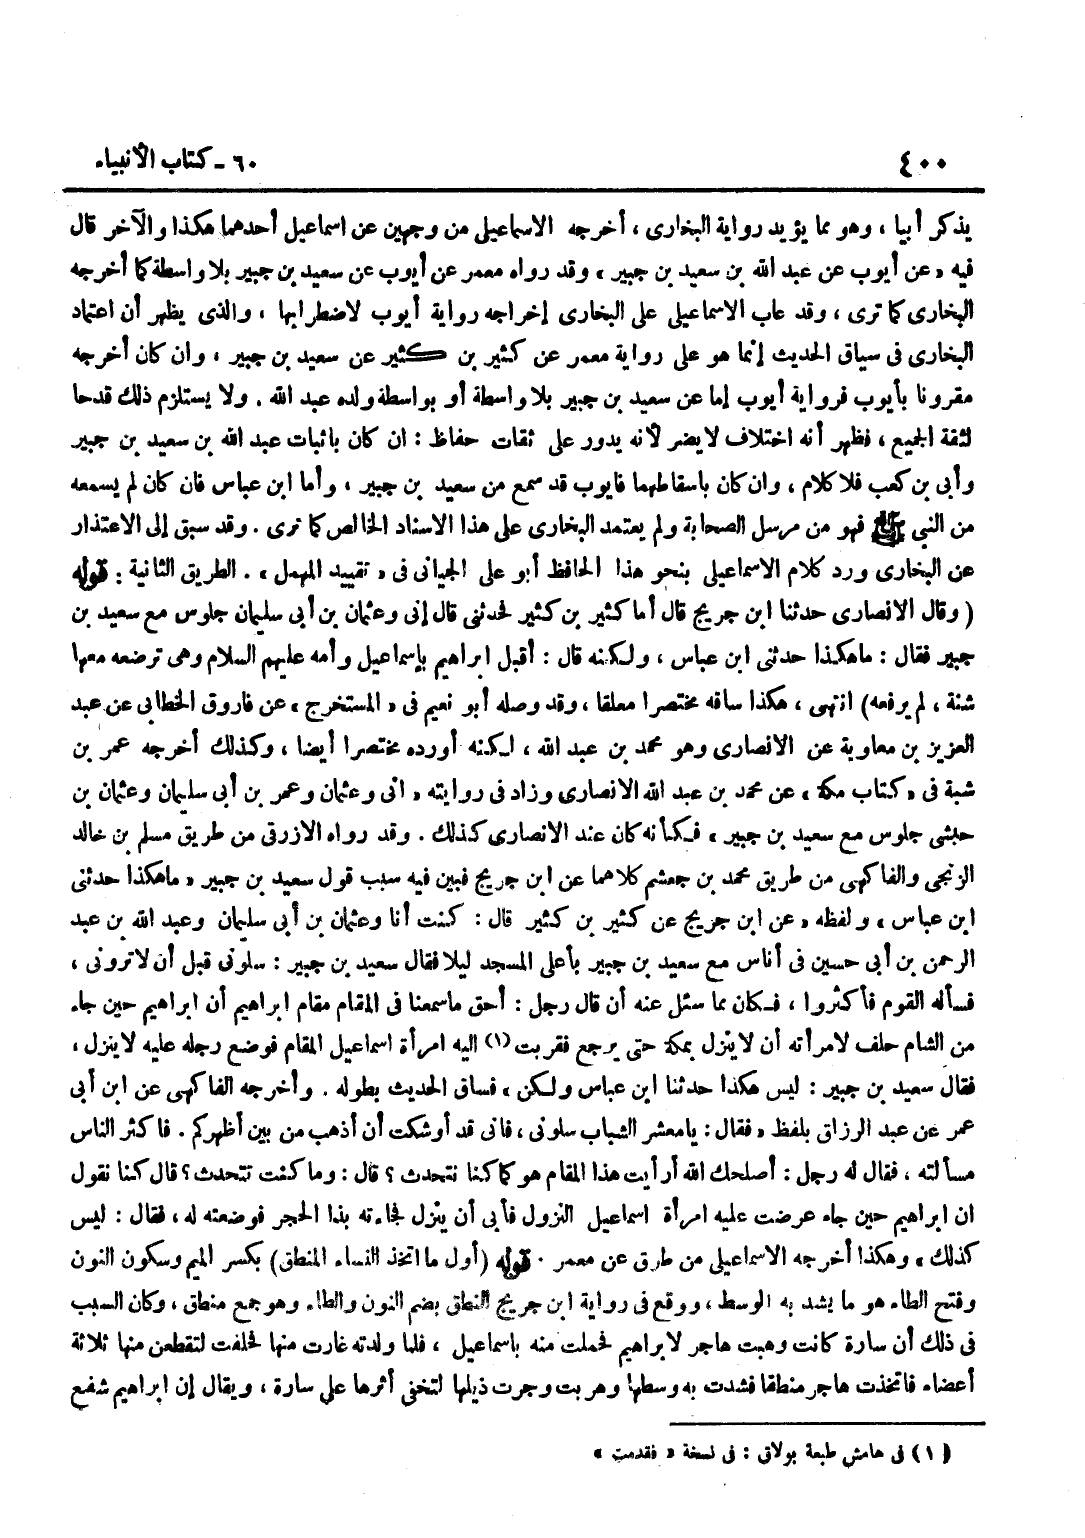 ٤٠٠
٦٠ - كتاب الأنبياء
يذكر أبيا ، وهو مما يؤيد رواية البخارى ، أخرجه الاسماعيلى من وجهين عن اسماعيل أحدهما هكذا والآخر قال
فيه « عن أيوب عن عبد الله بن سعيد بن جبير » وقد رواه معمر عن أيوب عن سعيد بن جبير بلا واسطة كما أخرجه
البخارى كما ترى ، وقد عاب الاسماعيلى على البخارى إخراجه رواية أيوب لاضطرابها ، والذى يظهر أن اعتماد
البخارى فى سياق الحديث إنما هو على رواية معمر عن كثير بن كثير عن سعيد بن جبير ، وان كان أخرجه
مقرونا بأيوب فرواية أيوب إما عن سعيد بن جبير بلا واسطة أو بواسطة ولده عبد الله . ولا يستلزم ذلك قدحا
لثقة الجميع ، فظهر أنه اختلاف لا يضر لأنه يدور على ثقات حفاظ : ان كان باثبات عبد الله بن سعيد بن جبير
وأبى بن كعب فلا كلام ، وان كان باسقاطهما فايوب قد سمع من سعيد بن جبير ، وأما ابن عباس فان كان لم يسمعه
من النبى ﷺ فهو من مرسل الصحابة ولم يعتمد البخارى على هذا الاسناد الخالص كما ترى . وقد سبق إلى الاعتذار
عن البخارى ورد كلام الاسماعيلى بنحو هذا الحافظ أبو على الجيانى فى « تقييد المهمل » . الطريق الثانية : قوله
( وقال الانصارى حدثنا ابن جريج قال أما كثير بن كثير فحدثنى قال إنى وعثمان بن أبى سليمان جلوس مع سعيد بن
جبير فقال : ماهكذا حدثنى ابن عباس ، ولكنه قال : أقبل ابراهيم بإسماعيل وأمه عليهم السلام وهى ترضعه معها
شنة ، لم يرفعه) انتهى ، هكذا ساقه مختصرا معلقا ، وقد وصله أبو نعيم فى « المستخرج » عن فاروق الخطابى عن عبد
العزيز بن معاوية عن الانصارى وهو محمد بن عبد الله ، لكنه أورده مختصرا أيضا ، وكذلك أخرجه عمر بن
شبة فى « كتاب مكة » عن محمد بن عبد الله الانصارى وزاد فى روايته « انى وعثمان وعمر بن أبى سليمان وعثمان بن
حبشى جلوس مع سعيد بن جبير » فكأنه كان عند الانصارى كذلك . وقد رواه الازرقى من طريق مسلم بن خالد
الزنجى والفاكهى من طريق محمد بن جعشم كلاهما عن ابن جريج فبين فيه سبب قول سعيد بن جبير « ماهكذا حدثنى
ابن عباس » ولفظه « عن ابن جريج عن كثير بن كثير قال : كنت أنا وعثمان بن أبى سليمان وعبد الله بن عبد
الرحمن بن أبى حسين فى أناس مع سعيد بن جبير بأعلى المسجد ليلا فقال سعيد بن جبير : سلونى قبل أن لا ترونى ،
فسأله القوم فأكثروا ، فكان مما سئل عنه أن قال رجل : أحق ماسمعنا فى المقام مقام ابراهيم أن ابراهيم حين جاء
من الشام حلف لامرأته أن لا ينزل بمكة حتى يرجع فقربت (١) اليه امرأة اسماعيل المقام فوضع رجله عليه لاينزل ،
فقال سعيد بن جبير : ليس هكذا حدثنا ابن عباس ولكن » فساق الحديث بطوله . وأخرجه الفاكهى عن ابن أبى
عمر عن عبد الرزاق بلفظ « فقال : يامعشر الشباب سلونى ، فانى قد أوشكت أن أذهب من بين أظهركم . فاكثر الناس
مسألته ، فقال له رجل : أصلحك الله أرأيت هذا المقام هو كما كنا نتحدث ؟ قال : وما كنت تتحدث ؟ قال كنا نقول
ان ابراهيم حين جاء عرضت عليه امرأة اسماعيل النزول فأبى أن ينزل فجاءته بذا الحجر فوضعته له ، فقال : ليس
كذلك » وهكذا أخرجه الاسماعيلى من طرق عن معمر . قوله (أول ما اتخذ النساء المنطق) بكسر الميم وسكون النون
وفتح الطاء هو ما يشد به الوسط ، ووقع فى رواية ابن جريج النطق بضم النون والطاء وهو جمع منطاق ، وكان السبب
فى ذلك أن سارة كانت وهبت هاجر لابراهيم فحملت منه باسماعيل ، فلما ولدته غارت منها فحلفت لتقطعن منها ثلاثة
أعضاء فاتخذت هاجر منطقا فشدت به وسطها وهربت وجرت ذيلها لتخفى أثرها على سارة ، ويقال إن ابراهيم شفع
(١) فى هامش طبعة بولاق : فى نسخة « فقدمت »